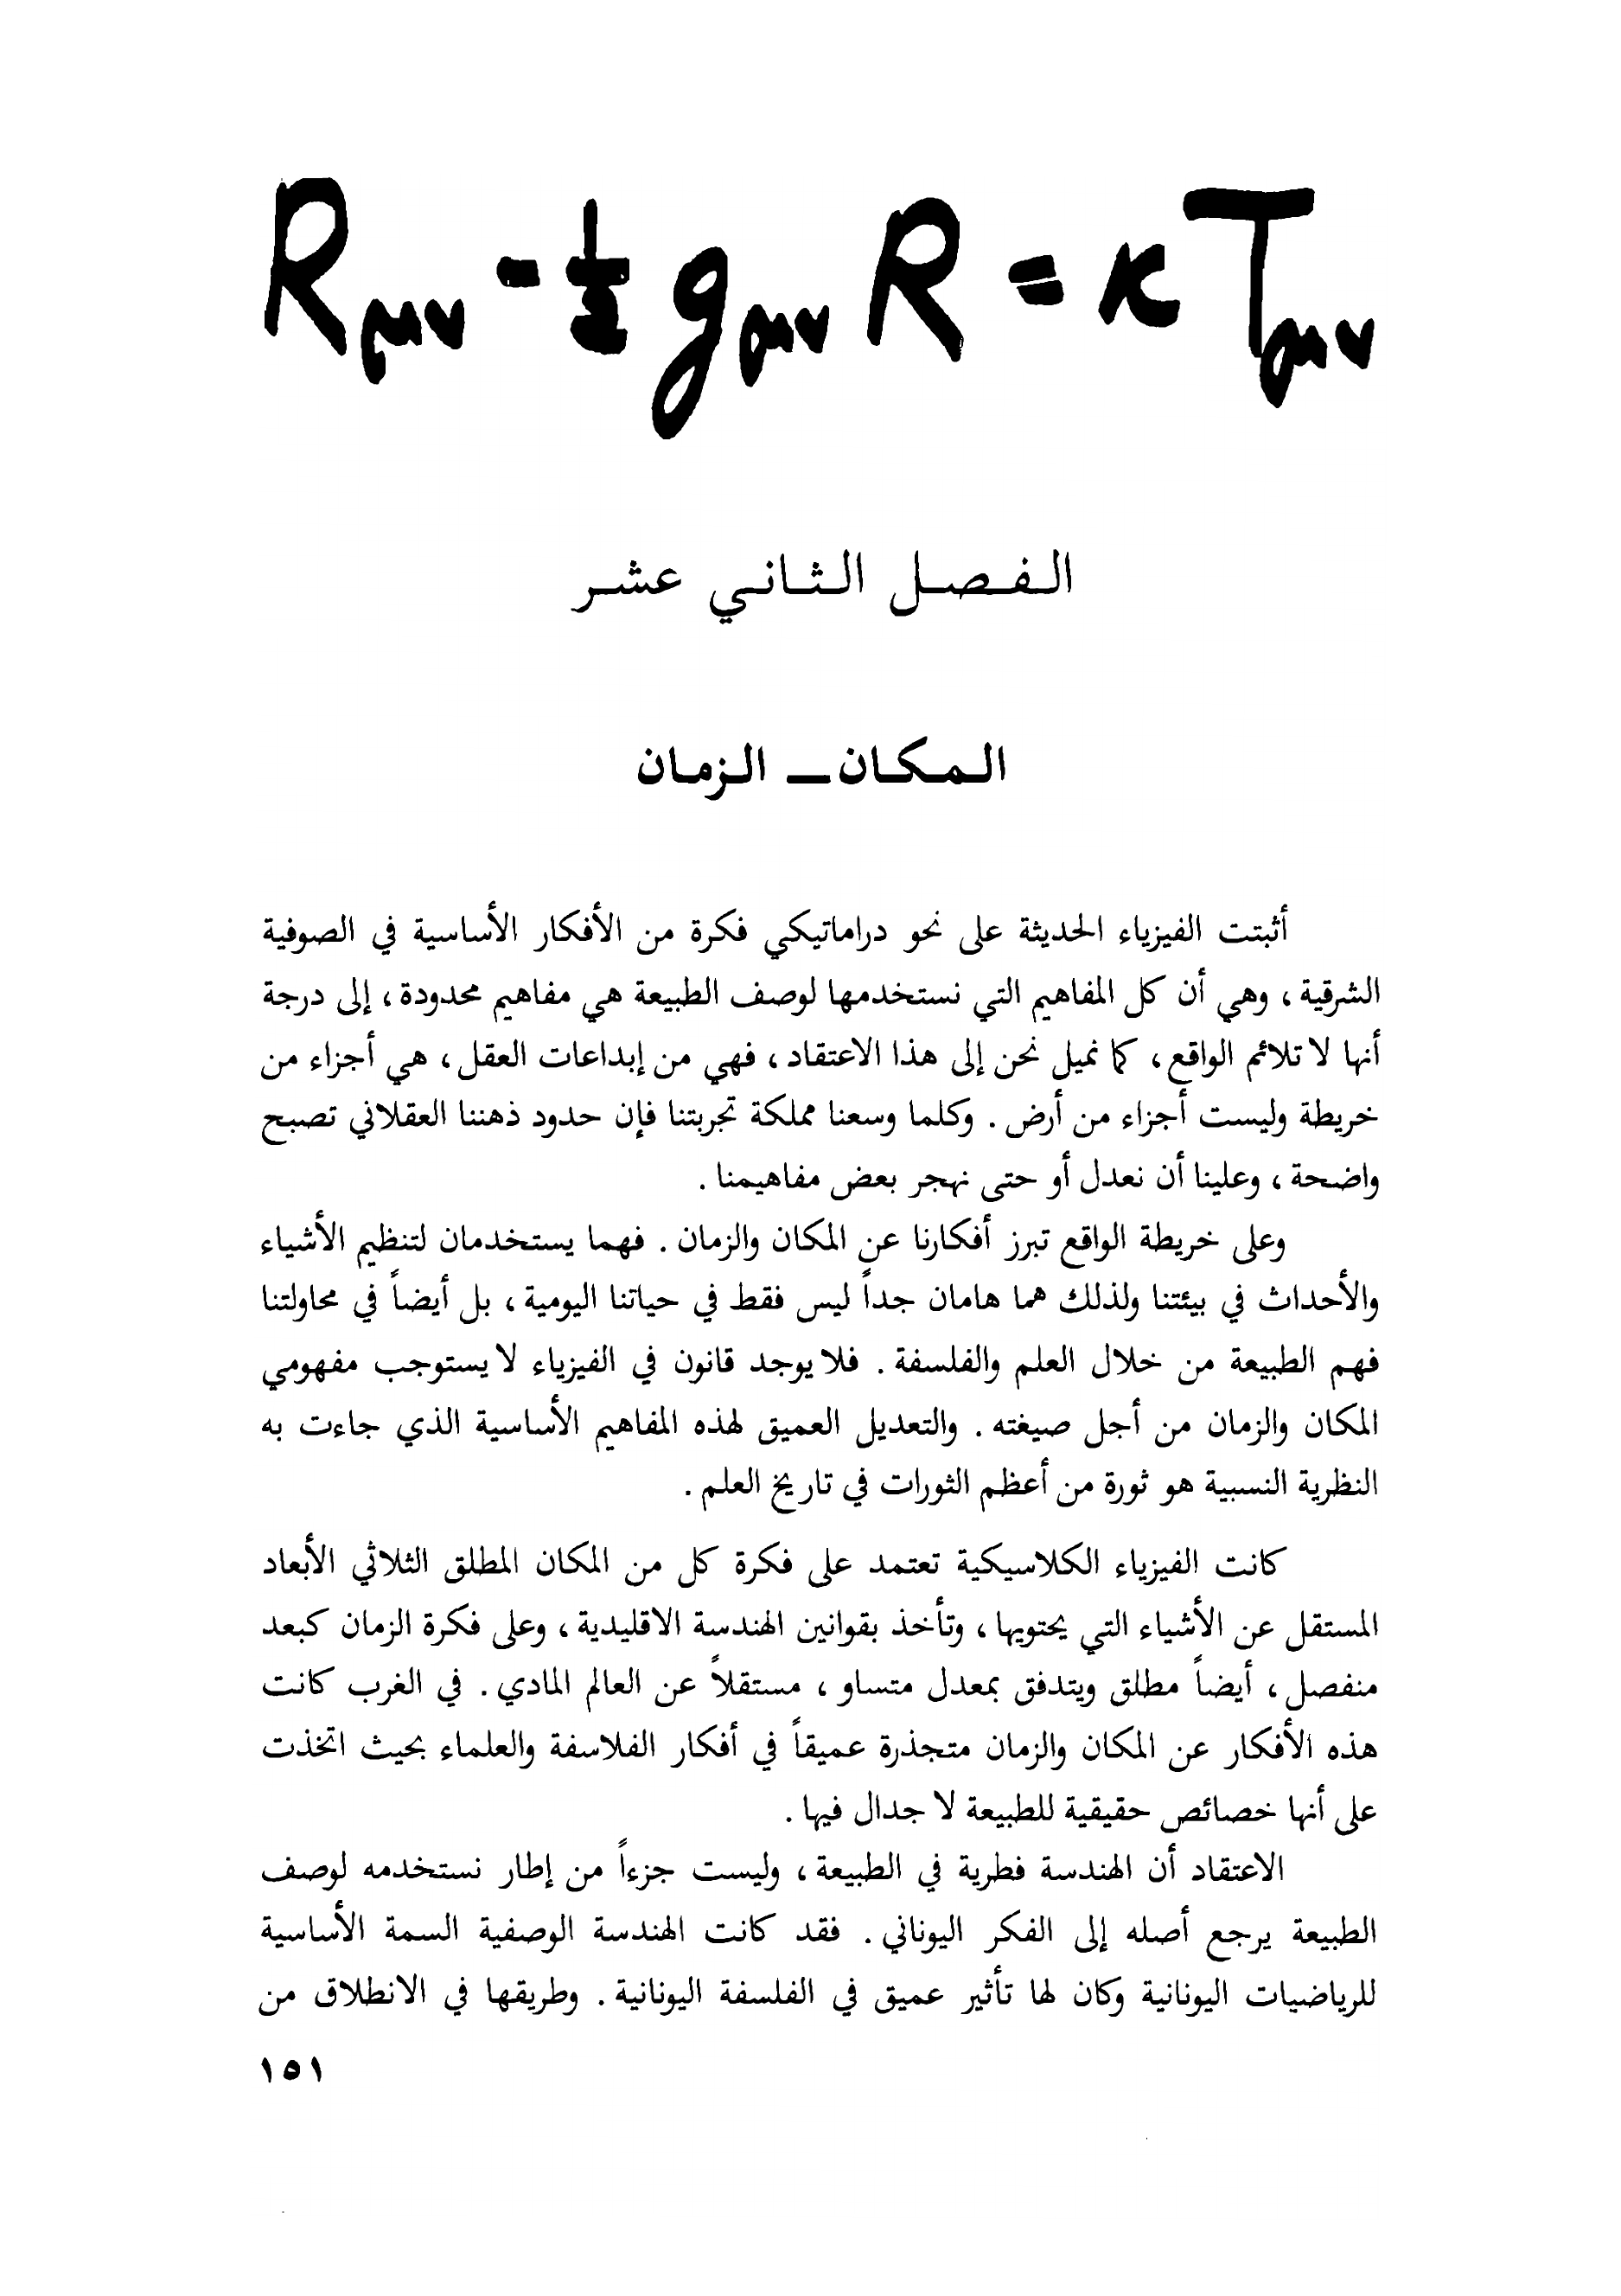 Rμν - ½ gμν R = κ Tμν
الفصل الثاني عشر
المكان - الزمان
أثبتت الفيزياء الحديثة على نحو دراماتيكي فكرة من الأفكار الأساسية في الصوفية
الشرقية ، وهي أن كل المفاهيم التي نستخدمها لوصف الطبيعة هي مفاهيم محدودة ، إلى درجة
أنها لا تلائم الواقع ، كما نميل نحن إلى هذا الاعتقاد ، فهي من إبداعات العقل ، هي أجزاء من
خريطة وليست أجزاء من أرض . وكلما وسعنا مملكة تجربتنا فإن حدود ذهننا العقلاني تصبح
واضحة ، وعلينا أن نعدل أو حتى نهجر بعض مفاهيمنا .
وعلى خريطة الواقع تبرز أفكارنا عن المكان والزمان . فهما يستخدمان لتنظيم الأشياء
والأحداث في بيئتنا ولذلك هما هامان جداً ليس فقط في حياتنا اليومية ، بل أيضاً في محاولتنا
فهم الطبيعة من خلال العلم والفلسفة . فلا يوجد قانون في الفيزياء لا يستوجب مفهومي
المكان والزمان من أجل صيغته . والتعديل العميق لهذه المفاهيم الأساسية الذي جاءت به
النظرية النسبية هو ثورة من أعظم الثورات في تاريخ العلم .
كانت الفيزياء الكلاسيكية تعتمد على فكرة كل من المكان المطلق الثلاثي الأبعاد
المستقل عن الأشياء التي يحتويها ، وتأخذ بقوانين الهندسة الاقليدية ، وعلى فكرة الزمان كبعد
منفصل ، أيضاً مطلق ويتدفق بمعدل متساو ، مستقلاً عن العالم المادي . في الغرب كانت
هذه الأفكار عن المكان والزمان متجذرة عميقاً في أفكار الفلاسفة والعلماء بحيث اتخذت
على أنها خصائص حقيقية للطبيعة لا جدال فيها .
الاعتقاد أن الهندسة فطرية في الطبيعة ، وليست جزءاً من إطار نستخدمه لوصف
الطبيعة يرجع أصله إلى الفكر اليوناني . فقد كانت الهندسة الوصفية السمة الأساسية
للرياضيات اليونانية وكان لها تأثير عميق في الفلسفة اليونانية . وطريقها في الانطلاق من
١٥١